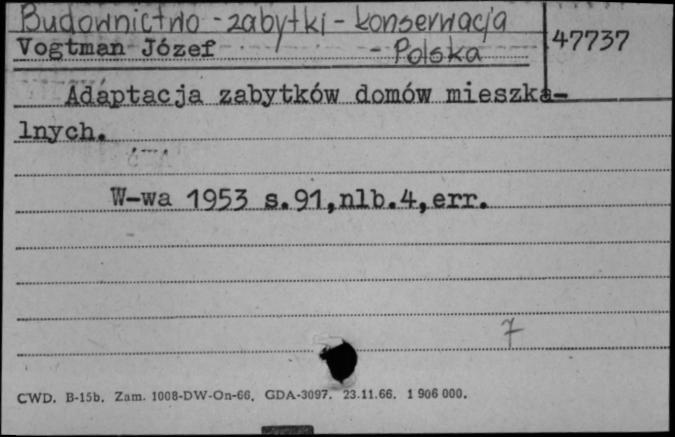 Budownictwo - zabytki - konserwacja
Vogtman Józef - Polska
47737
Adaptacja zabytków domów mieszka-
lnych.
W-wa 1953 s.91,nlb.4,err.
7
CWD. B-15b. Zam. 1008-DW-On-66. GDA-3097. 23.11.66. 1 906 000.